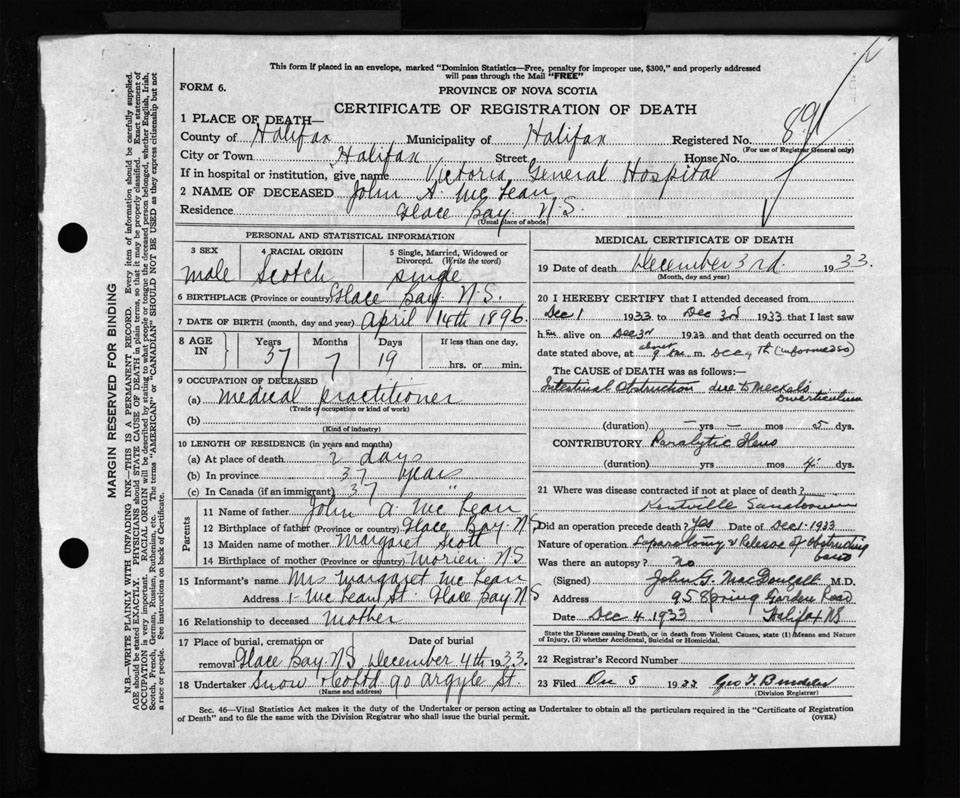 This form if placed in an envelope, marked "Dominion Statistics—Free, penalty for improper use, $300," and properly addressed
will pass through the Mail "FREE"
FORM 6.
PROVINCE OF NOVA SCOTIA
CERTIFICATE OF REGISTRATION OF DEATH
1 PLACE OF DEATH—
County of Halifax Municipality of Halifax Registered No. 891
(For use of Registrar General only)
City or Town Halifax Street House No.
If in hospital or institution, give name Victoria General Hospital
2 NAME OF DECEASED John A. McLean
Residence Glace Bay N.S.
(Usual place of abode)
PERSONAL AND STATISTICAL INFORMATION
3 SEX 4 RACIAL ORIGIN 5 Single, Married, Widowed or Divorced. (Write the word)
male Scotch single
6 BIRTHPLACE (Province or country) Glace Bay N.S.
7 DATE OF BIRTH (month, day and year) April 14th 1896
8 AGE IN Years Months Days If less than one day,
37 7 19 hrs. or min.
9 OCCUPATION OF DECEASED
(a) medical practitioner
(Trade or occupation or kind of work)
(b)
(Kind of industry)
10 LENGTH OF RESIDENCE (in years and months)
(a) At place of death 2 days
(b) In province 37 years
(c) In Canada (if an immigrant) 37 "
Parents
11 Name of father John A. McLean
12 Birthplace of father (Province or country) Glace Bay NS
13 Maiden name of mother Margaret Scott
14 Birthplace of mother (Province or country) Morien NS
15 Informant's name Mrs Margaret McLean
Address 1 McLean St. Glace Bay NS
16 Relationship to deceased Mother
17 Place of burial, cremation or removal Glace Bay NS Date of burial December 4th 1933.
18 Undertaker Snow & Co Ltd 90 Argyle St.
(Name and address)
MEDICAL CERTIFICATE OF DEATH
19 Date of death December 3rd 1933.
(Month, day and year)
20 I HEREBY CERTIFY that I attended deceased from
Dec 1 1933 to Dec 3rd 1933 that I last saw
him alive on Dec 3rd 1933 and that death occurred on the
date stated above, at about 9 m.
The CAUSE OF DEATH was as follows:—
Intestinal Obstruction due to Meckel's
Diverticulum
(duration) — yrs — mos 5 dys.
CONTRIBUTORY Paralytic Ileus
(duration) yrs mos 4 dys.
21 Where was disease contracted if not at place of death?
Kentville Sanatorium
Did an operation precede death? Yes Date of Dec 1 1933
Nature of operation Laparotomy & Release of Obstructing
band
Was there an autopsy? No
(Signed) John G. MacDougall M.D.
Address 95 Spring Garden Road
Date Dec 4 1933 Halifax NS
State the Disease causing Death, or in death from Violent Causes, state (1) Means and Nature
of Injury, (2) whether Accidental, Suicidal or Homicidal.
22 Registrar's Record Number
23 Filed Dec 5 1933 Geo
(Division Registrar)
Sec. 46—Vital Statistics Act makes it the duty of the Undertaker or person acting as Undertaker to obtain all the particulars required in the "Certificate of Registration
of Death" and to file the same with the Division Registrar who shall issue the burial permit.
(OVER)
MARGIN RESERVED FOR BINDING
N.B.—WRITE PLAINLY WITH UNFADING INK—THIS IS A PERMANENT RECORD. Every item of information should be carefully supplied.
AGE should be stated EXACTLY. PHYSICIANS should STATE CAUSE OF DEATH in plain terms, so that it may be properly classified. Exact statement of
OCCUPATION is very important. RACIAL ORIGIN will be described by stating to what people or tongue the deceased person belonged, whether English, Irish,
Scotch, French, German, Russian, Ruthenian, etc. The terms "AMERICAN" or "CANADIAN" SHOULD NOT BE USED as they express citizenship but not
a race or people. See instructions on back of Certificate.